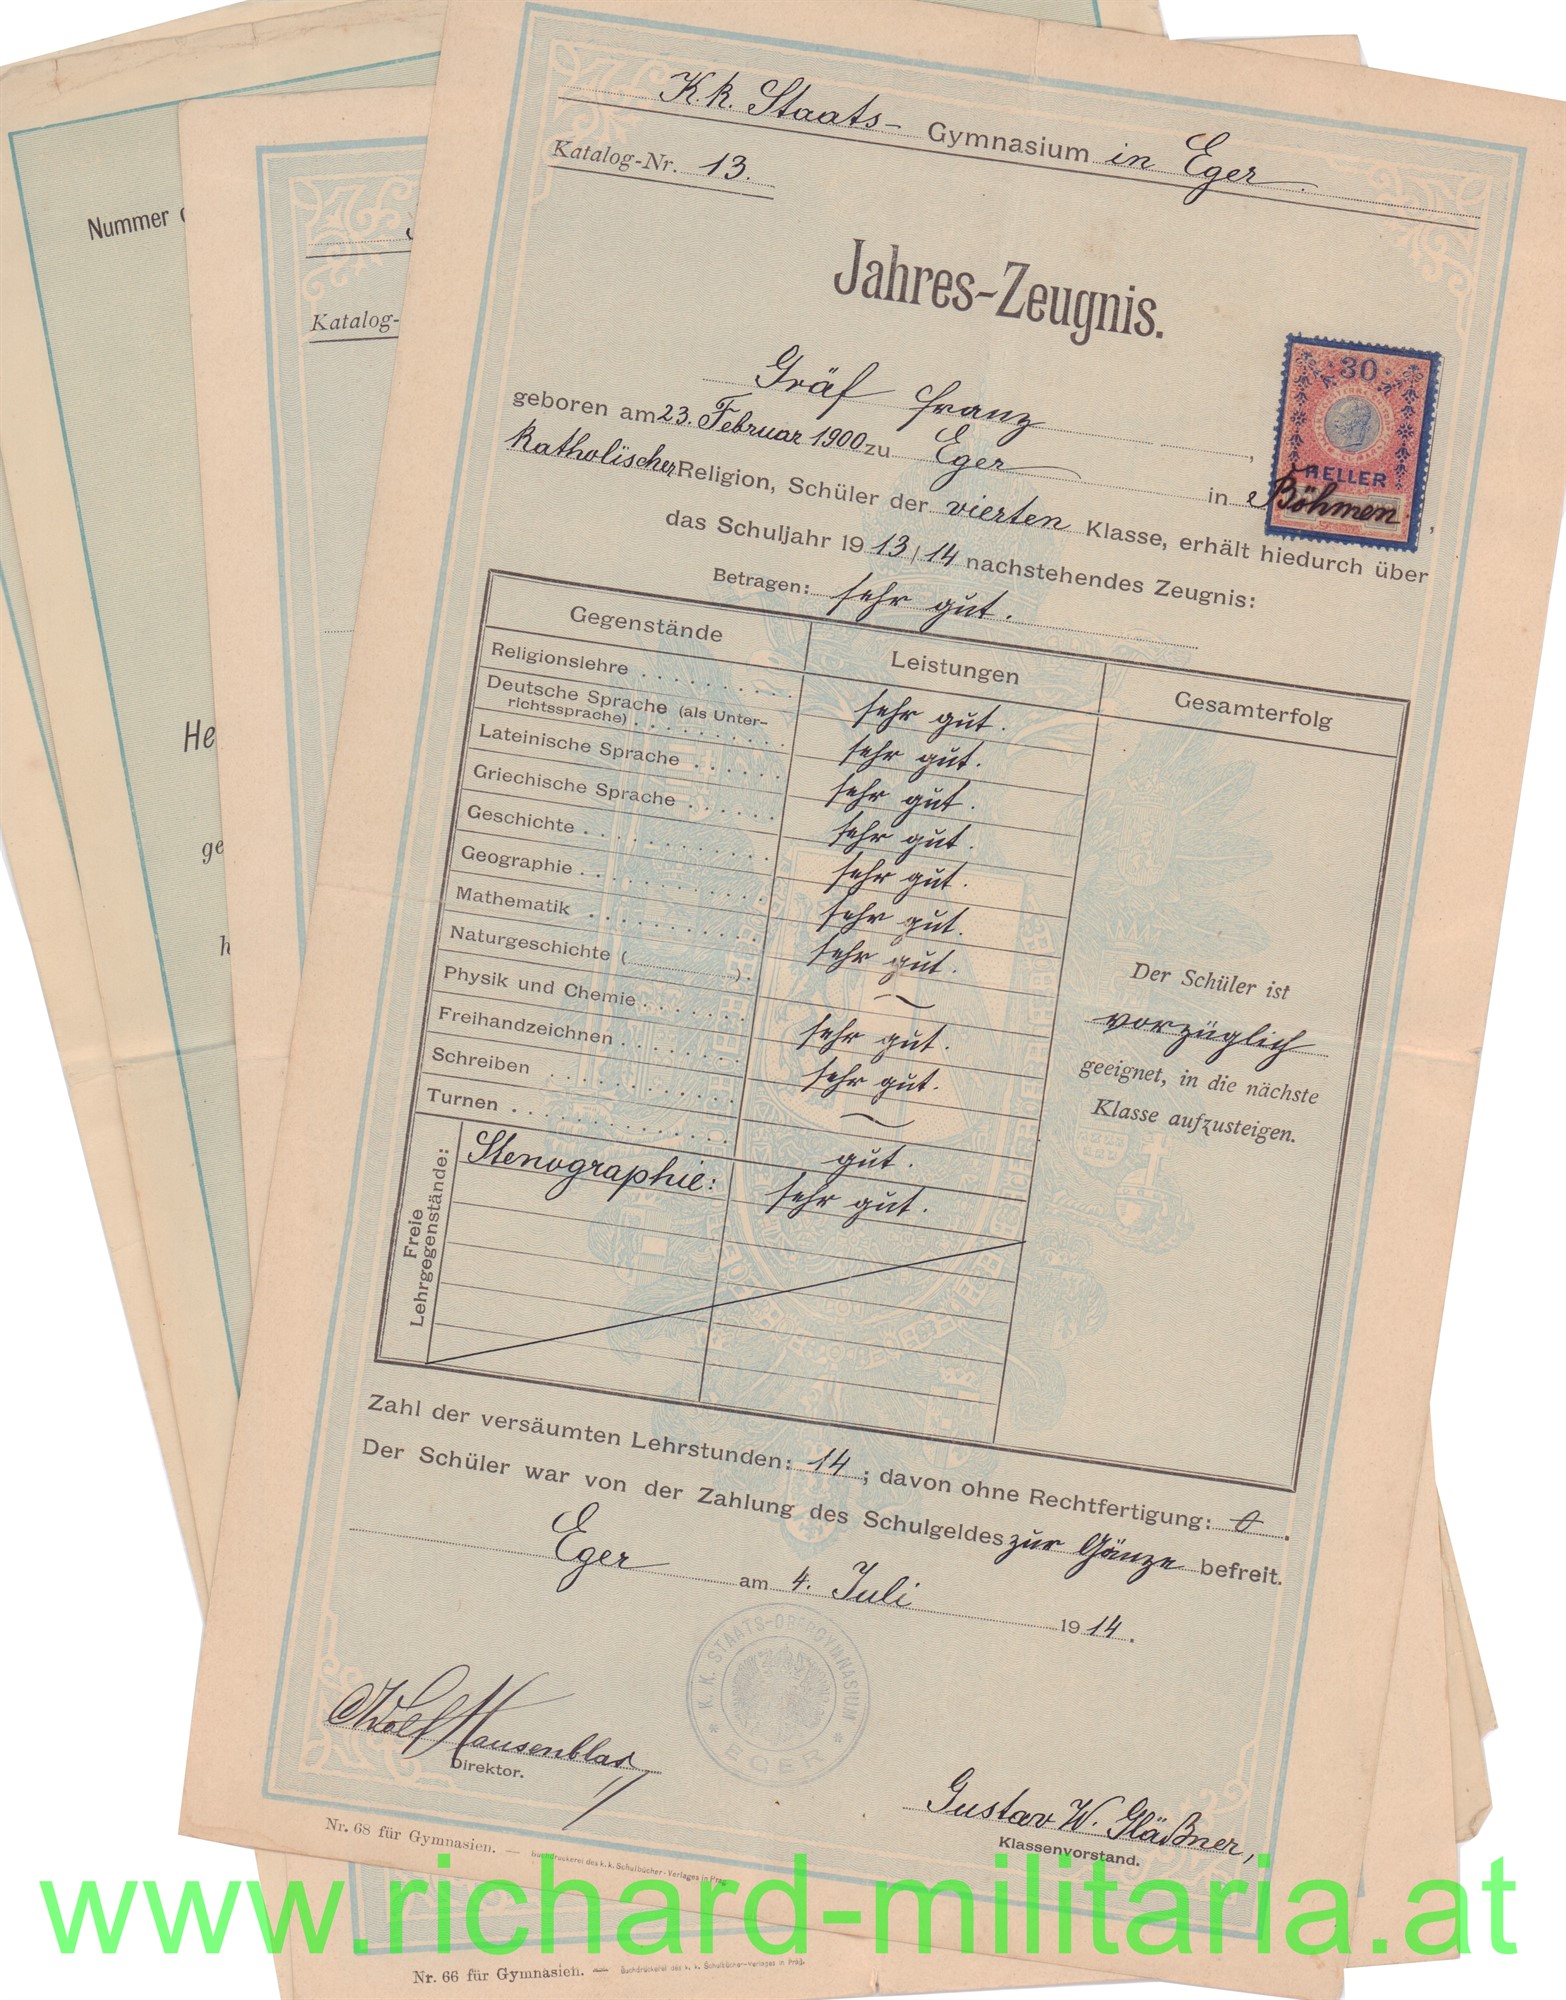 K. k. Staats- Gymnasium in Eger.
Katalog-Nr. 13.
Jahres-Zeugnis.
30
HELLER
Gräf Franz,
geboren am 23. Februar 1900 zu Eger in Böhmen.,
katholischer Religion, Schüler der vierten Klasse, erhält hiedurch über
das Schuljahr 1913/14 nachstehendes Zeugnis:
Betragen: sehr gut.
Gegenstände Leistungen Gesamterfolg
Religionslehre sehr gut.
Deutsche Sprache (als Unter-
richtssprache) sehr gut.
Lateinische Sprache sehr gut.
Griechische Sprache sehr gut.
Geschichte sehr gut.
Geographie sehr gut.
Mathematik sehr gut.
Naturgeschichte ( ) ~
Physik und Chemie sehr gut.
Freihandzeichnen sehr gut.
Schreiben ~
Turnen gut.
Freie
Lehrgegenstände:
Stenographie: sehr gut.
Der Schüler ist
vorzüglich
geeignet, in die nächste
Klasse aufzusteigen.
Zahl der versäumten Lehrstunden: 14; davon ohne Rechtfertigung: 0.
Der Schüler war von der Zahlung des Schulgeldes zur Gänze befreit.
Eger am 4. Juli 1914.
K. K. STAATS-OBERGYMNASIUM
* EGER *
Adolf Hausenblas
Direktor.
Gustav W. Gläßner,
Klassenvorstand.
Nr. 68 für Gymnasien. — Buchdruckerei des k. k. Schulbücher-Verlages in Prag.
Nummer
Katalog-
He
ge
Nr. 66 für Gymnasien. — Buchdruckerei des k. k. Schulbücher-Verlages in Prag.
www.richard-militaria.at